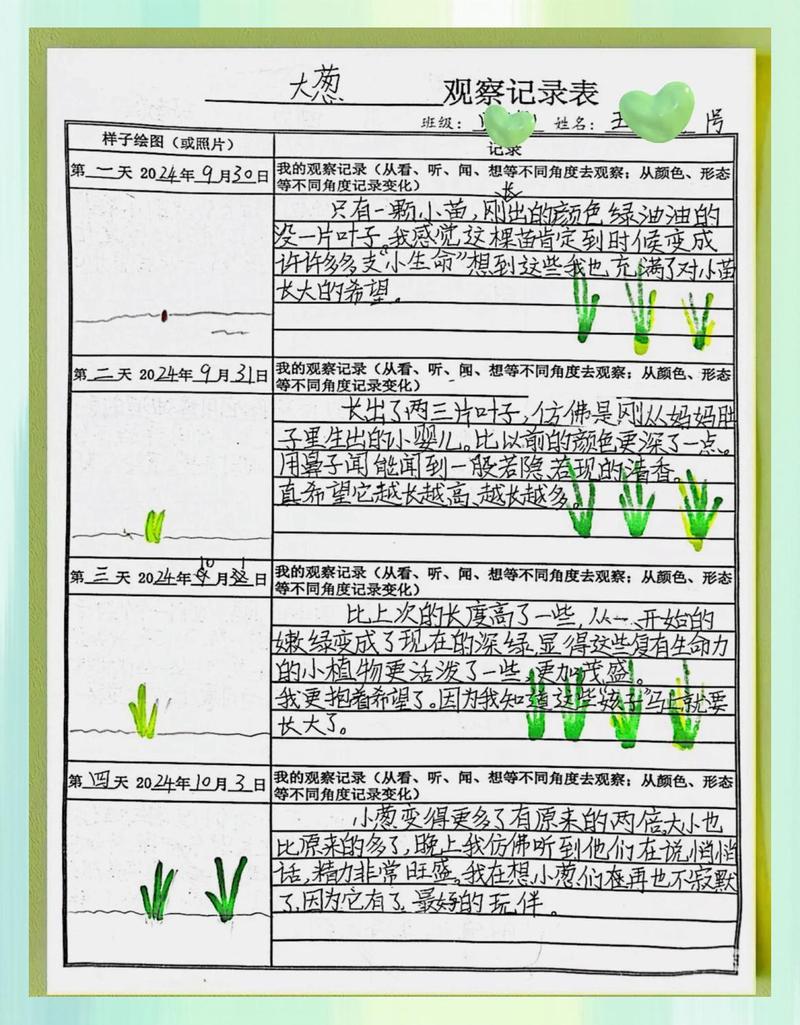 大葱 观察记录表
班级： 姓名：王 号
样子绘图（或照片） 记录
第一天 2024年9月30日
我的观察记录（从看、听、闻、想等不同角度去观察；从颜色、形态
等不同角度记录变化）
只有一颗小苗，刚长出的颜色绿油油的
没一片叶子。我感觉这棵苗肯定到时候变成
许许多多支“小生命”想到这些我也充满了对小苗
长大的希望。
第二天 2024年9月31日
我的观察记录（从看、听、闻、想等不同角度去观察；从颜色、形态
等不同角度记录变化）
长出了两三片叶子，仿佛是刚从妈妈肚
子里生出的小婴儿。比以前的颜色更深了一点。
用鼻子闻能闻到一般若隐若现的清香。
真希望它越长越高、越长越多。
第三天 2024年10月1日
我的观察记录（从看、听、闻、想等不同角度去观察；从颜色、形态
等不同角度记录变化）
比上次的长度高了一些，从一、开始的
嫩绿变成了现在的深绿，显得这些复有生命力
的小植物更活泼了一些，更加茂盛。
我更抱着希望了。因为我知道这些“孩子”马上就要
长大了。
第四天 2024年10月3日
我的观察记录（从看、听、闻、想等不同角度去观察；从颜色、形态
等不同角度记录变化）
小葱变得更多了有原来的两倍，大小也
比原来的多了，晚上我仿佛听到他们在说悄悄
话，精力非常旺盛。我在想，小葱们在再也不寂默
了，因为它有了最好的玩伴。